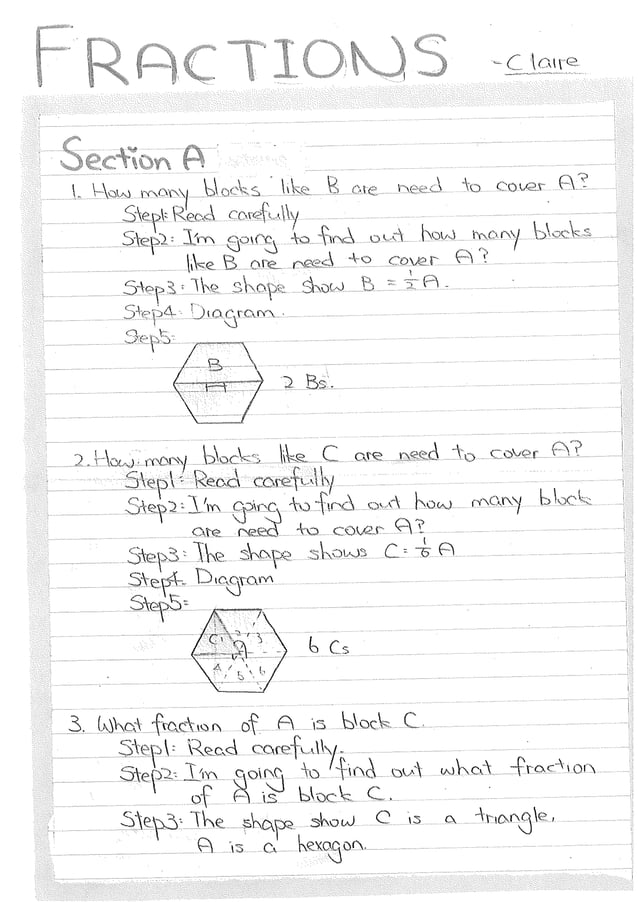 FRACTIONS - Claire
Section A
1. How many blocks like B are need to cover A?
Step1: Read carefully
Step2: I'm going to find out how many blocks
like B are need to cover A?
Step3: The shape show B = 1/2 A.
Step4: Diagram.
Step5:
B
A
2 Bs.
2. How many blocks like C are need to cover A?
Step1: Read carefully
Step2: I'm going to find out how many block
are need to cover A?
Step3: The shape shows C = 1/6 A
Step4: Diagram
Step5:
C 1 2 3
A
4 5 6
6 Cs
3. What fraction of A is block C.
Step1: Read carefully.
Step2: I'm going to find out what fraction
of A is block C.
Step3: The shape show C is a triangle,
A is a hexagon.